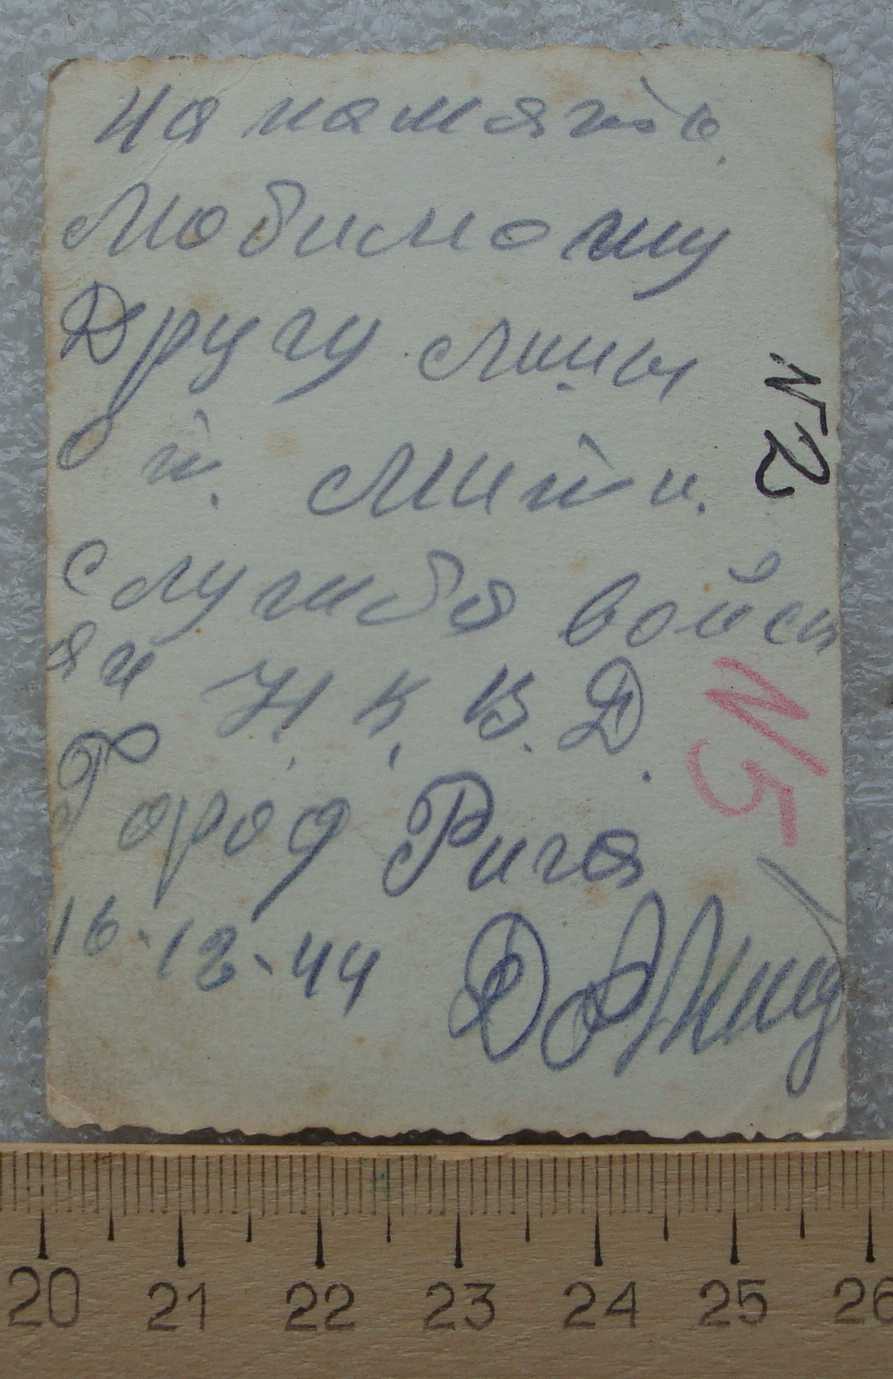 На память
Любимому
Другу Миши
и. Мити.
Служба войск
ай Н.К.В.Д.
Город Рига
16-12-44
N2
N5
20 21 22 23 24 25 26